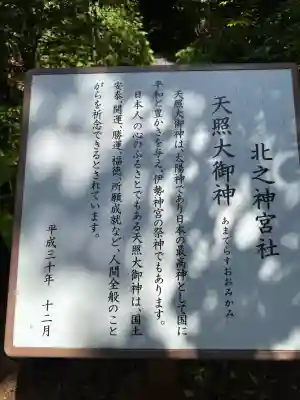 北之神宮社
天照大御神 あまてらすおおみかみ
天照大御神は、太陽神であり日本の最高神として国に
平和と豊かさを与え、伊勢神宮の祭神でもあります。
日本人の心のふるさとでもある天照大御神は、国土
安泰、開運、勝運、福徳、所願成就など、人間全般のこと
がらを祈念できるとされています。
平成三十年 十二月